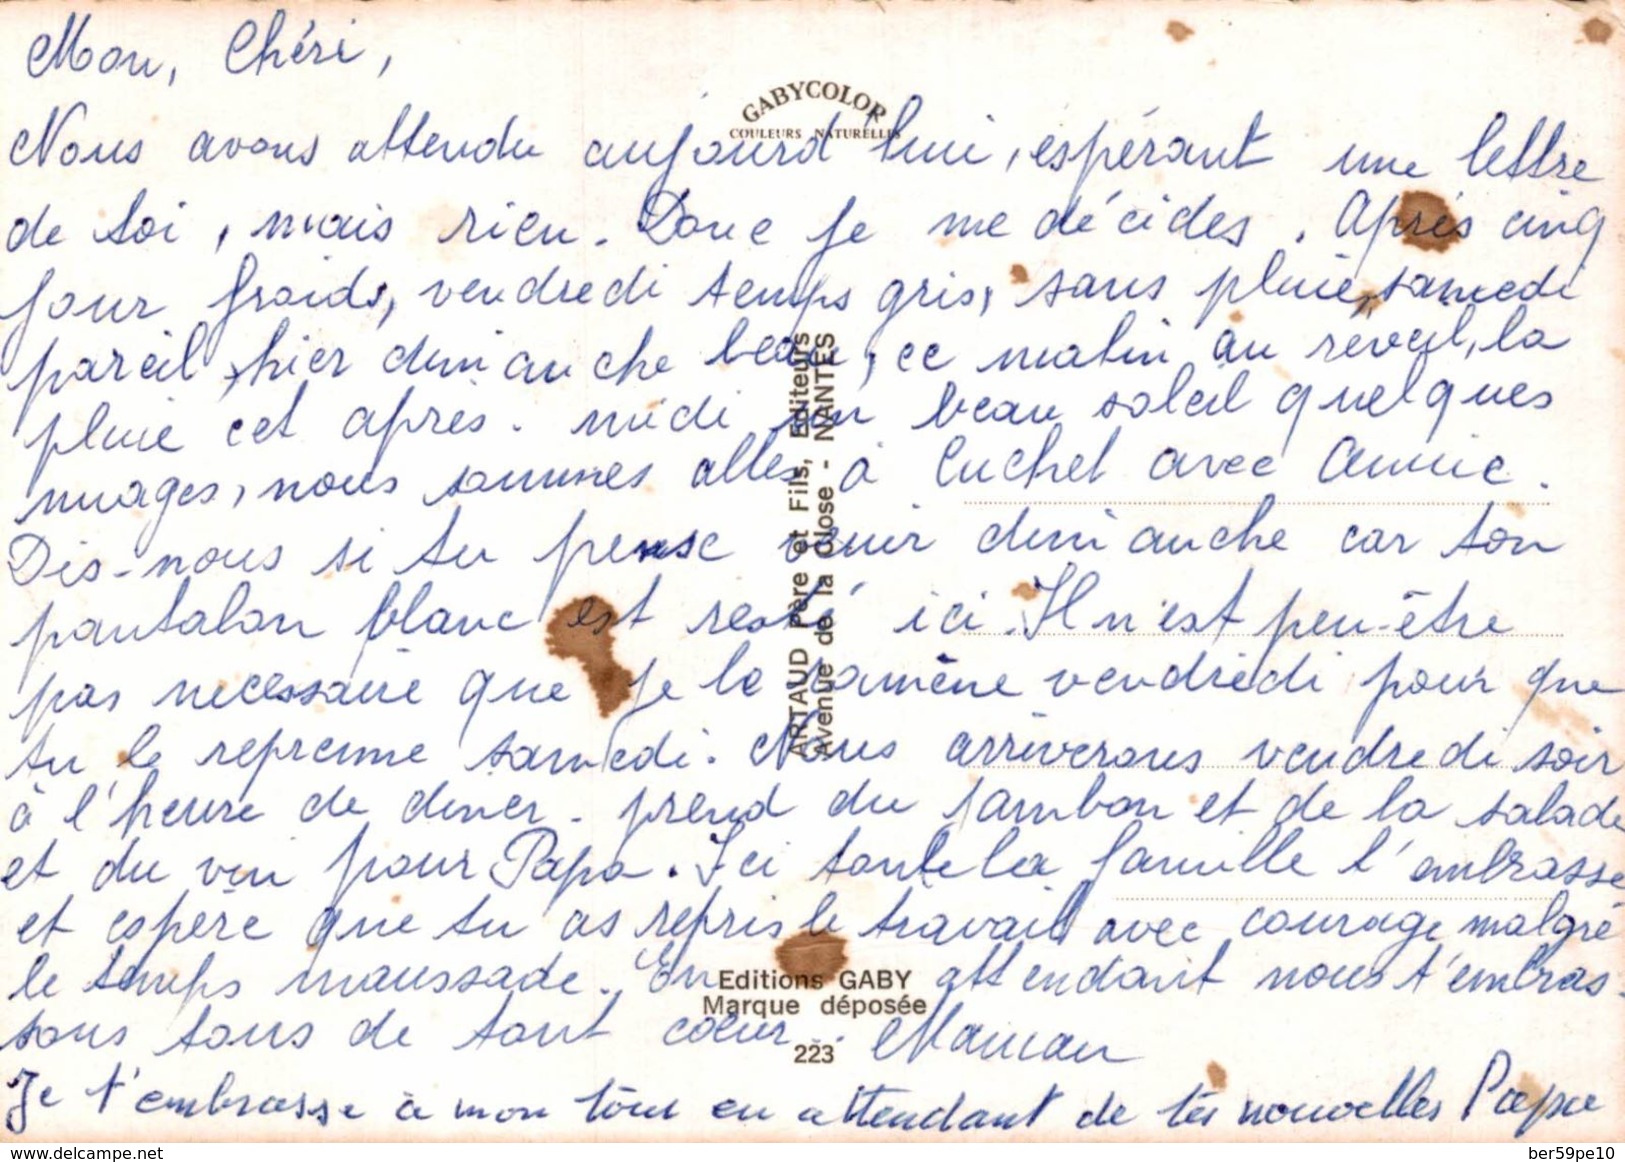 Mon, Chéri,
GABYCOLOR
COULEURS NATURELLES
Nous avons attendu aujourd'hui, espérant une lettre
de toi, mais rien. Donc je me décides. Après cinq
jour froids, vendredi temps gris, sans pluie, samedi
pareil, hier dimanche beau, ce matin au réveil, la
pluie cet après-midi un beau soleil quelques
nuages, nous sommes alles à Cuchet avec Annie.
Dis-nous si tu pense venir dimanche car ton
pantalon blanc est resté ici. Il n'est peu-être
pas nécessaire que je le ramène vendredi pour que
tu le reprenne samedi. Nous arriverons vendredi soir
à l'heure de diner. prend du jambon et de la salade
et du vin pour Papa. Ici toute la famille t'embrasse
et espère que tu as repris le travail avec courage malgré
le temps maussade. En attendant nous t'embras-
sons tous de tout cœur. Maman
Je t'embrasse à mon tour en attendant de tes nouvelles Papa
ARTAUD Père et Fils, Editeurs
Avenue de la Close - NANTES
Editions GABY
Marque déposée
223
delcampe.net
ber59pe10